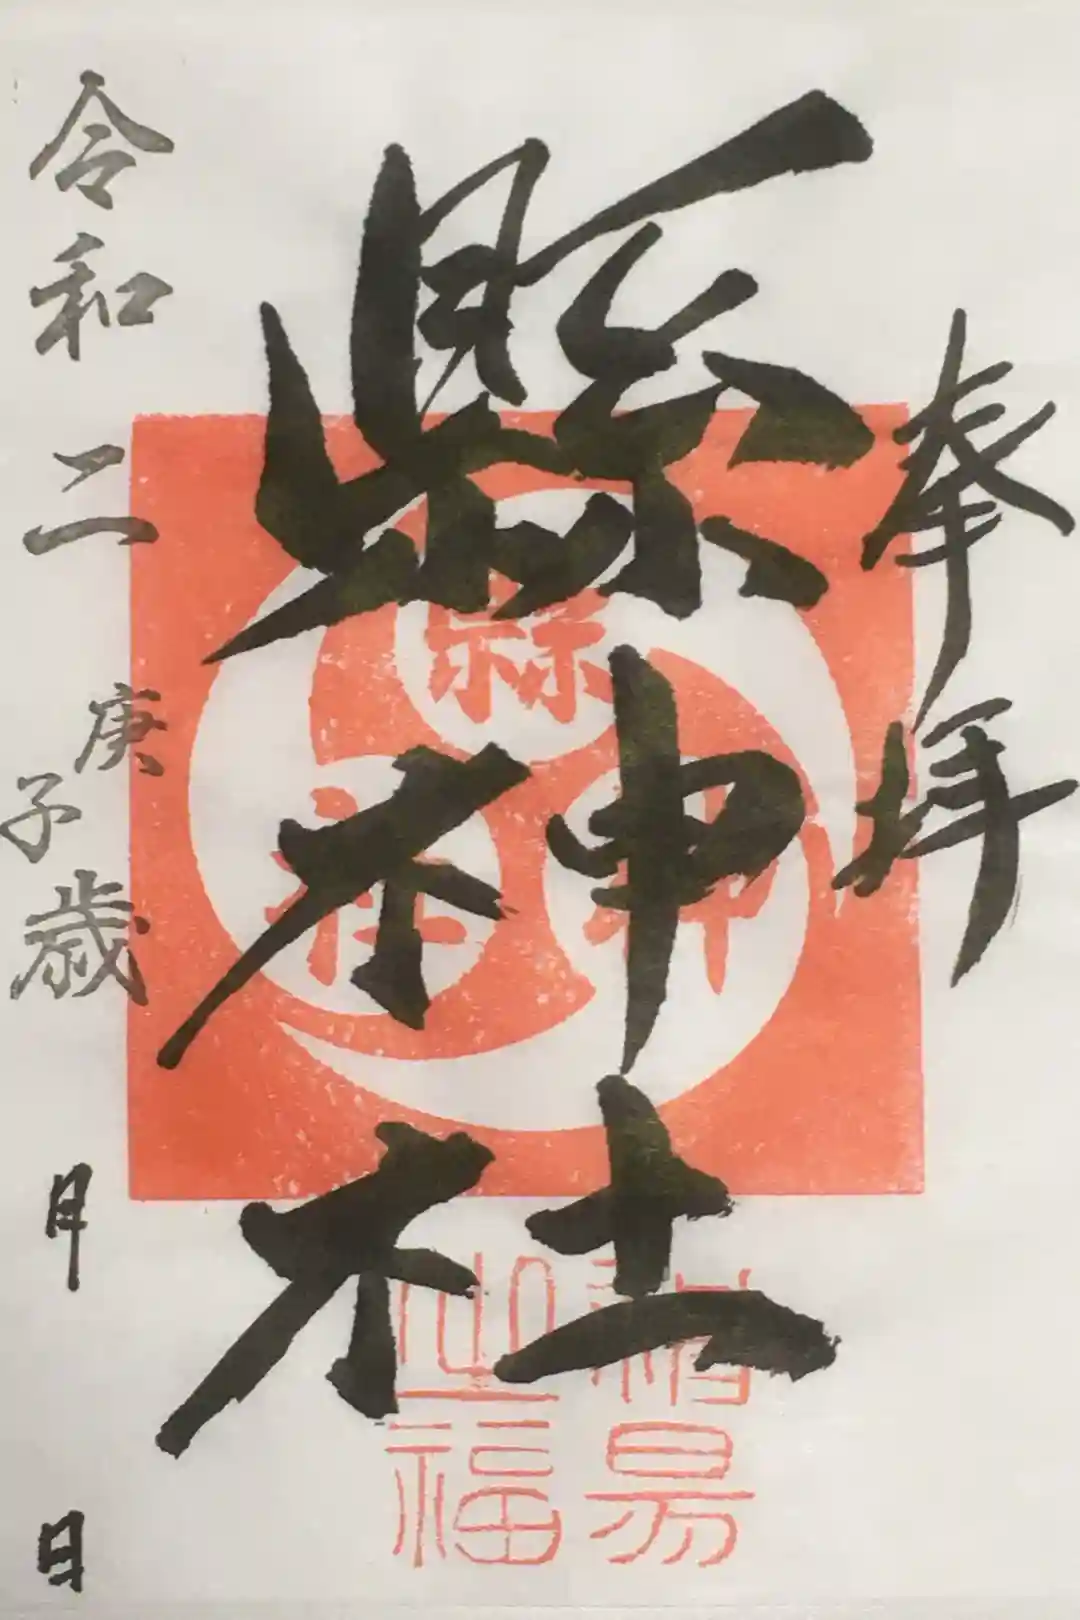 奉拝
縣神社
令和二庚子歳 月 日
縣
神
社
易
之福